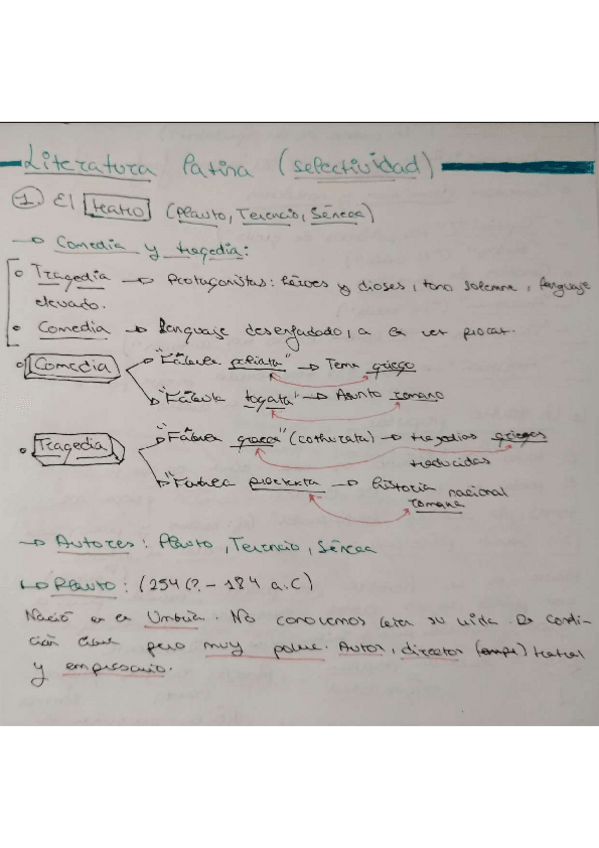 Literatura latina (selectividad)
1. El teatro (Plauto, Terencio, Séneca)
→ Comedia y tragedia:
Tragedia → Protagonistas: héroes y dioses, tono solemne, lenguaje
elevado.
Comedia → lenguaje desenfadado, a la vez procaz.
Comedia
"Fábula palliata" → Tema griego
"Fábula togata" → Asunto romano
Tragedia
"Fábula graeca" (cothurata) → tragedias griegas
traducidas
"Fábula praetexta" → historia nacional
romana
→ Autores: Plauto, Terencio, Séneca
↳ Plauto: (254 (? - 184 a.C)
Nació en la Umbría. No conocemos su vida. De condi-
ción libre pero muy pobre. Autor, director teatral
y empresario.